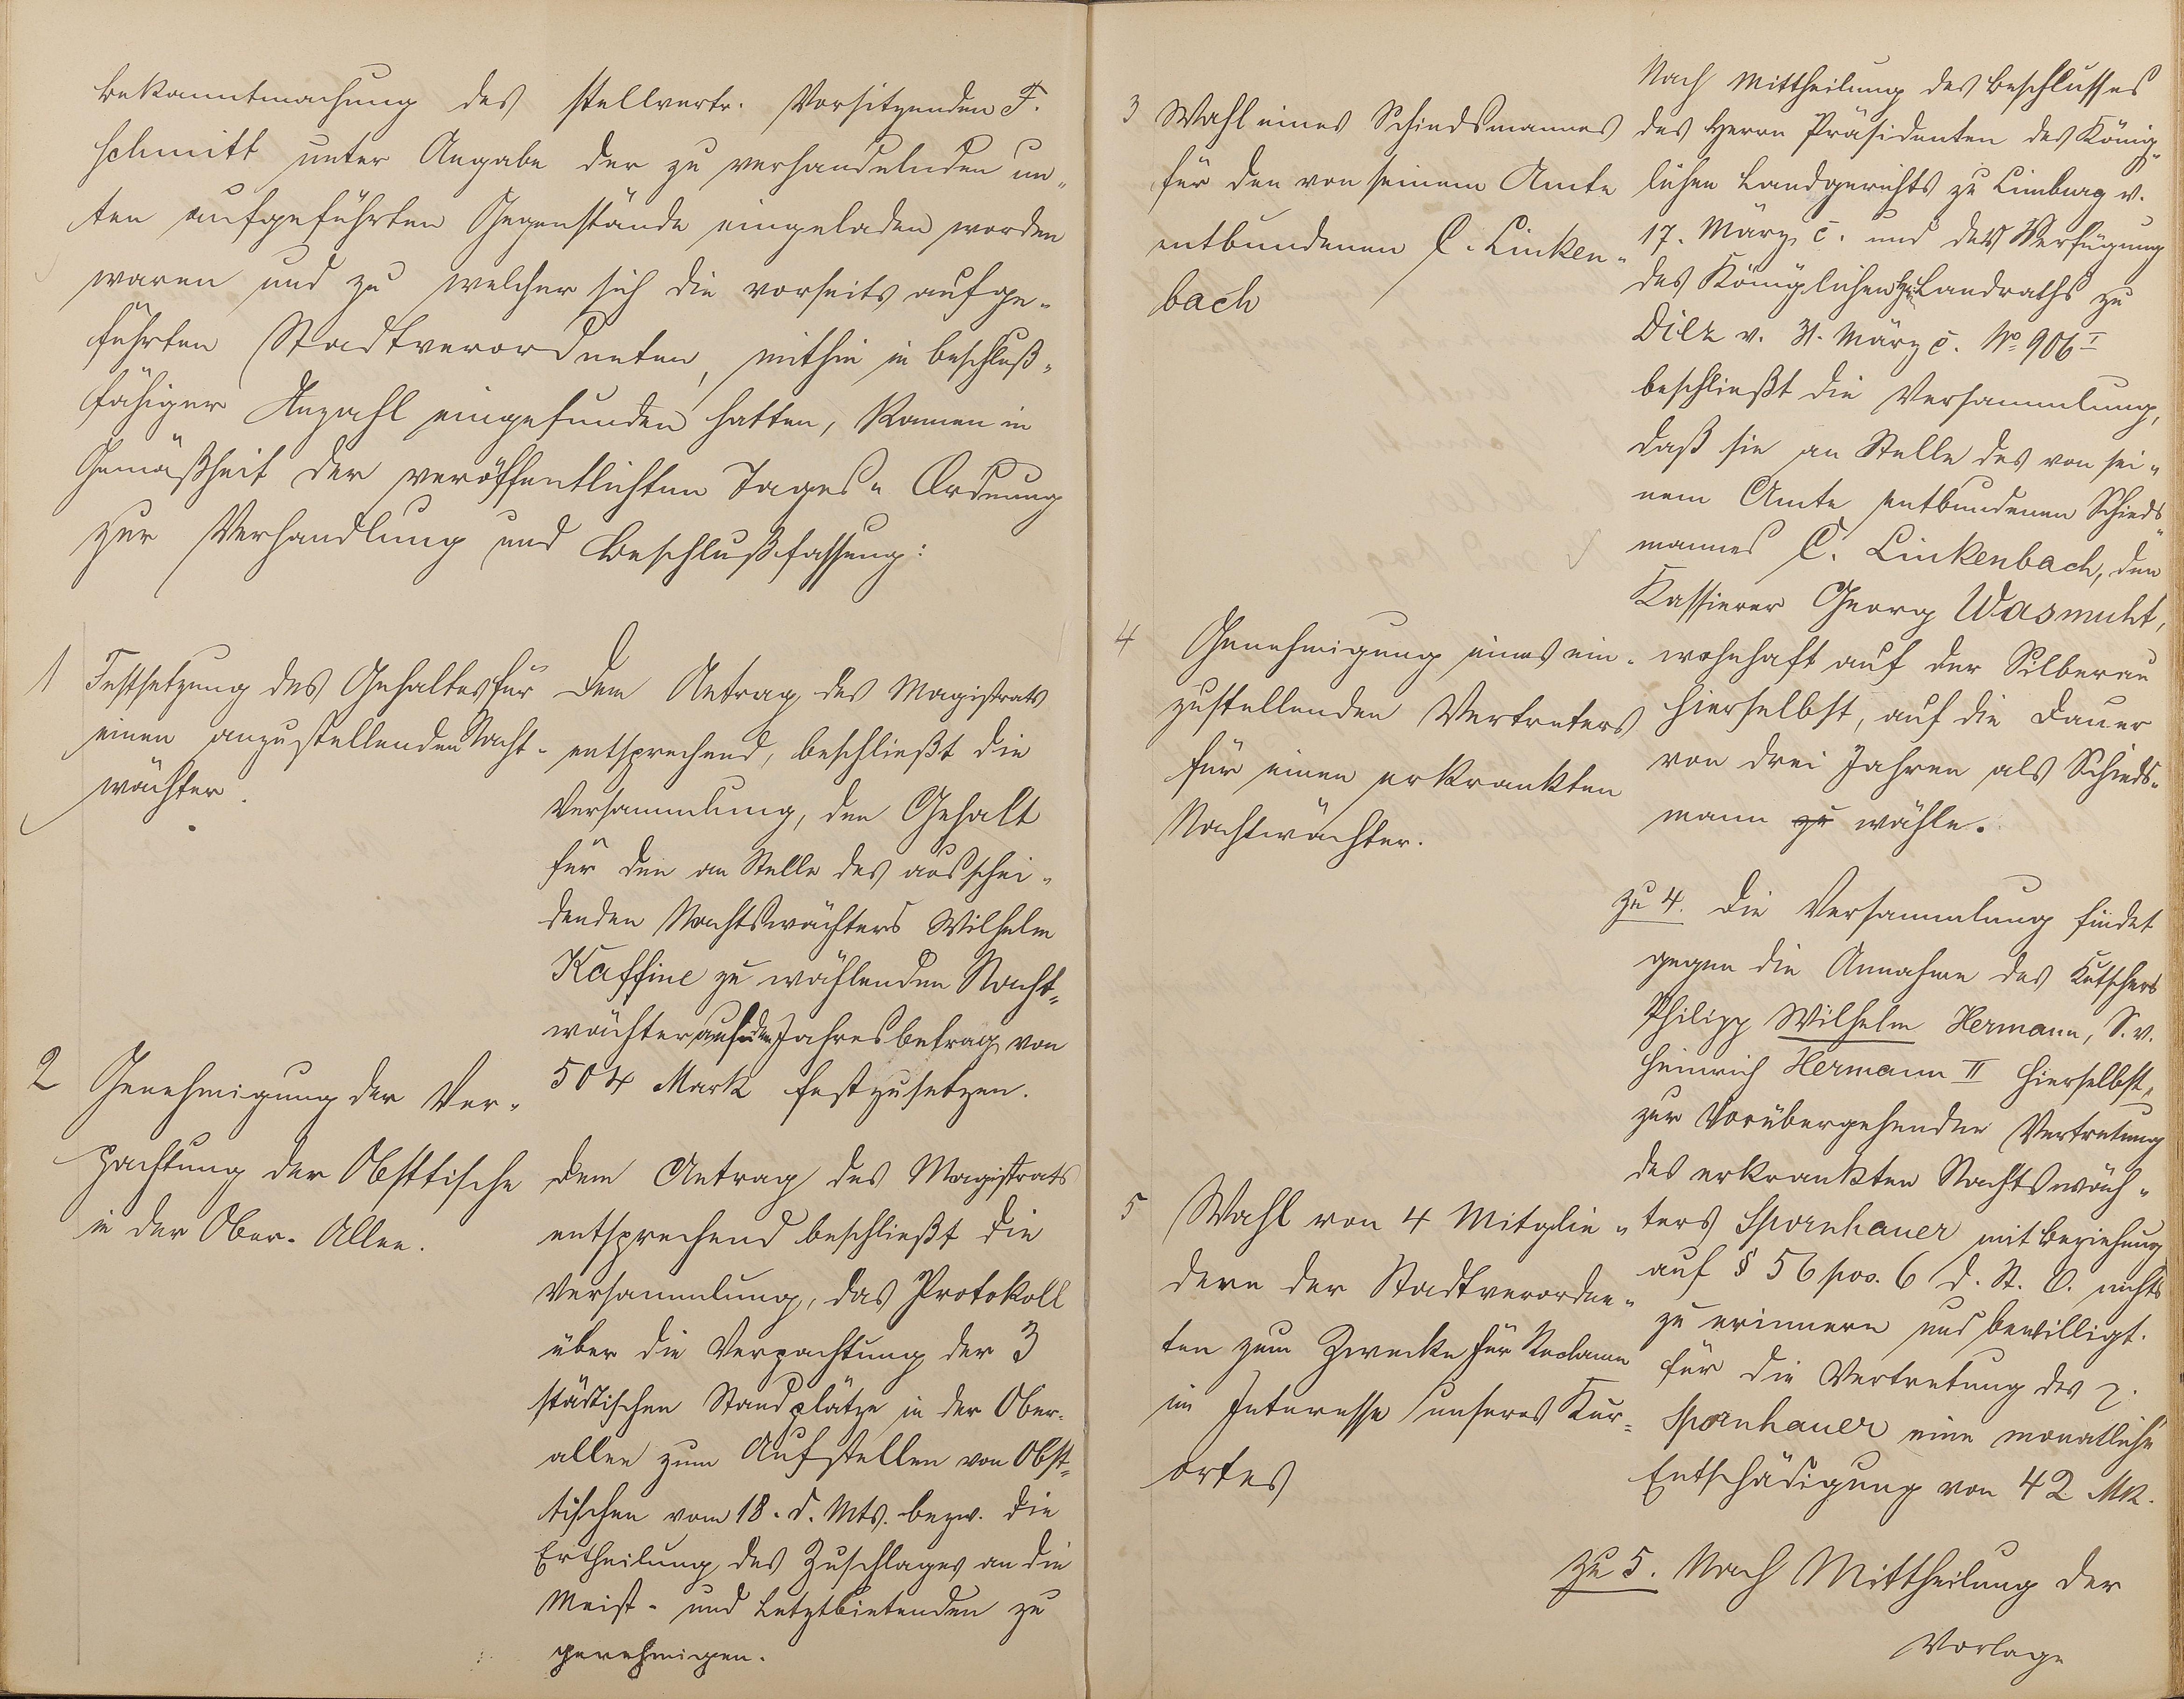 Bekanntmachung des stellvertr. Vorsitzenden F.
Schmitt unter Angabe der zu verhandelnden un„
ten aufgeführten Gegenstände eingeladen worden
waren und zu welcher sich die vorseits aufge-
führten Stadtverordneten, mithin in beschluß-
fähiger Anzahl eingefunden hatten, kamen in
Gemäßheit der veröffentlichten Tages„ Ordnung
zur Verhandlung und Beschlußfassung:
1 Festsetzung des Gehaltes für
einen anzustellenden Nacht-
wächter.
Dem Antrag des Magistrats
entsprechend, beschließt die
Versammlung, den Gehalt
für den an Stelle des ausschei„
denden Nachtswächters Wilhelm
Kaffine zu wählenden Nacht„
wächter auf den Jahresbetrag von
504 Mark festzusetzen.
2 Genehmigung der Ver„
pachtung der Obsttische
in der Ober-Allee.
Dem Antrag des Magistrats
entsprechend beschließt die
Versammlung, das Protokoll
über die Verpachtung der 3
städtischen Standplätze in der Ober-
allee zum Aufstellen von Obst„
tischen vom 18. d. Mts. bezw. die
Ertheilung des Zuschlages an die
Meist- und Letztbietenden zu
genehmigen.
3 Wahl eines Schiedsmannes
für den von seinem Amte
entbundenen C. Linken„
bach
Nach Mittheilung des Beschlusses
des Herrn Präsidenten des König„
lichen Landgerichts zu Limburg v.
17. März c. und der Verfügung
des Königlichen Hrn Landraths zu
Diez v. 31. März c. No 906 I
beschließt die Versammlung,
daß sie an Stelle des von sei„
nem Amte entbundenen Schieds„
mannes C. Linkenbach, den
Kassierer Georg Wasmuht,
wohnhaft auf der Silberau
hierselbst, auf die Dauer
von drei Jahren als Schieds-
mann zu wähle.
4 Genehmigung eines ein„
zustellenden Vertreters
für einen erkrankten
Nachtwächter.
zu 4. Die Versammlung findet
gegen die Annahme des Kutschers
Philipp Wilhelm Hermann, S. v.
Heinrich Hermann II hierselbst,
zur Vorübergehenden Vertretung
des erkrankten Nachtswäch„
ters Spornhauer mit Beziehung
auf § 56 pos. 6 d. St. O. nichts
zu erinnern und bewilligt.
für die Vertretung des p.
Spornhauer eine monatliche
Entschädigung von 42 Mk.
5 Wahl von 4 Mitglie„
dern der Stadtverordne„
ten zum Zwecke für Reclame
im Interesse unseres Kur„
ortes
zu 5. Nach Mittheilung der
Vorlage